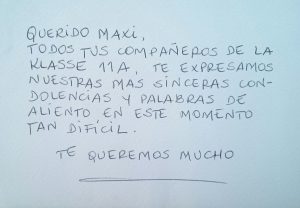 QUERIDO MAXI,
TODOS TUS COMPAÑEROS DE LA
KLASSE 11A, TE EXPRESAMOS
NUESTRAS MAS SINCERAS CON-
DOLENCIAS Y PALABRAS DE
ALIENTO EN ESTE MOMENTO
TAN DIFÍCIL.
TE QUEREMOS MUCHO